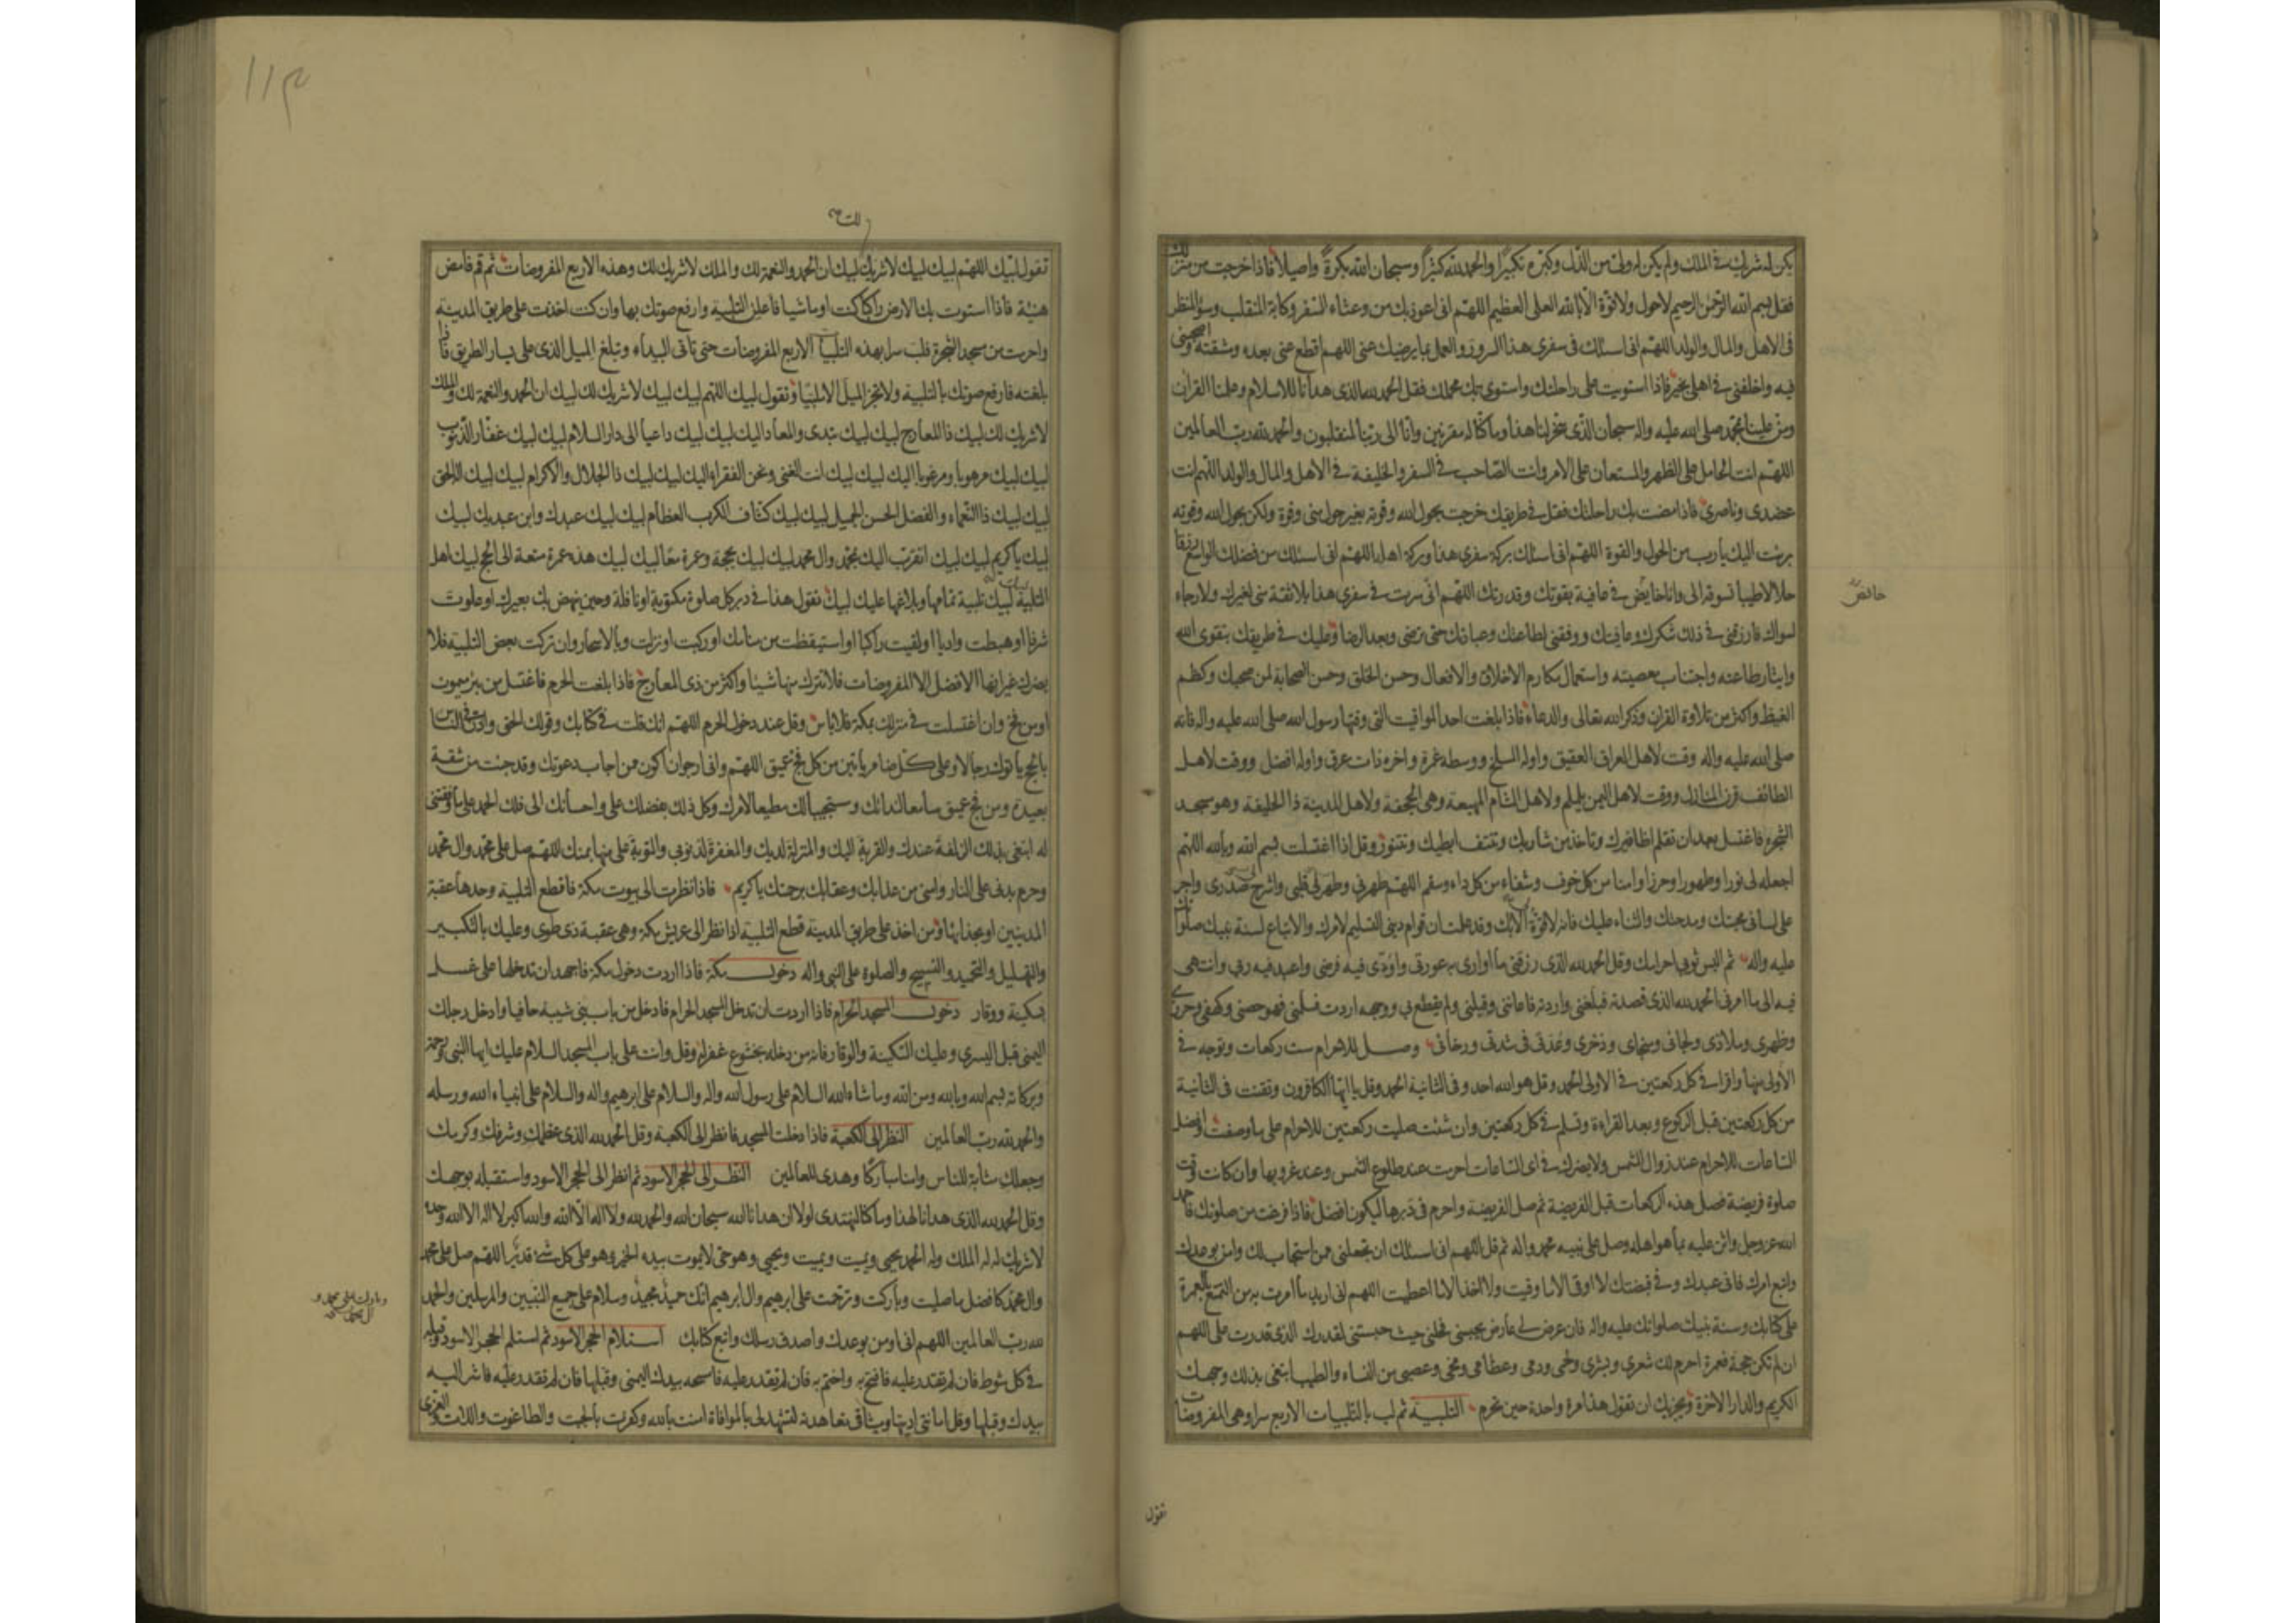 يكن له شريك في الملك ولم يكن له ولي من الذل وكبره تكبيرا والحمد لله كثيرا وسبحان الله بكرة واصيلا فاذا خرجت من منزلك
فقل بسم الله الرحمن الرحيم لاحول ولا قوة الا بالله العلي العظيم اللهم اني اعوذ بك من وعثاء السفر وكابة المنقلب وسوء المنظر
في الاهل والمال والولد اللهم اني اسئلك في سفري هذا السرور والعمل بما يرضيك عني اللهم اقطع عني بعده ومشقته واصحبني
فيه واخلفني في اهلي بخير فاذا استويت على راحلتك واستوى بك محملك فقل الحمد لله الذي هدانا للاسلام وعلمنا القران
ومن علينا بمحمد صلى الله عليه واله سبحان الذي سخر لنا هذا وما كنا له مقرنين وانا الى ربنا لمنقلبون والحمد لله رب العالمين
اللهم انت الحامل على الظهر والمستعان على الامر وانت الصاحب في السفر والخليفة في الاهل والمال والولد اللهم انت
عضدي وناصري فاذا مضت بك راحلتك فقل في طريقك خرجت بحول الله وقوته بغير حول مني وقوة ولكن بحول الله وقوته
برئت اليك يا رب من الحول والقوة اللهم اني اسئلك بركة سفري هذا وبركة اهله اللهم اني اسئلك من فضلك الواسع رزقا
حلالا طيبا تسوقه الى وانا خايض في عافية بقوتك وقدرتك اللهم اني سرت في سفري هذا بلا ثقة مني لغيرك ولا رجاء
حائض
لسواك فارزقني في ذلك شكرك وعافيتك ووفقني لطاعتك وعبادتك حتى ترضى وبعد الرضا وعليك في طريقك بتقوى الله
وايثار طاعته واجتناب معصيته واستعمال مكارم الاخلاق والافعال وحسن الخلق وحسن الصحابة لمن صحبك وكظم
الغيظ واكثر من تلاوة القران وذكر الله تعالى والدعاء فاذا بلغت احد المواقيت التي وقتها رسول الله صلى الله عليه واله فانه
صلى الله عليه واله وقت لاهل العراق العقيق واوله المسلخ ووسطه غمرة واخره ذات عرق واوله افضل ووقت لاهل
الطائف قرن المنازل ووقت لاهل اليمن يلملم ولاهل الشام المهيعة وهي الجحفة ولاهل المدينة ذا الحليفة وهو مسجد
الشجرة فاغتسل بعد ان تقلم اظافيرك وتاخذ من شاربك وتنتف ابطيك وتتنور وقل اذا اغتسلت بسم الله وبالله اللهم
اجعله لي نورا وطهورا وحرزا وامنا من كل خوف وشفاء من كل داء وسقم اللهم طهرني وطهر لي قلبي واشرح لي صدري واجر
على لساني محبتك ومدحتك والثناء عليك فانه لا قوة الا بك وقد علمت ان قوام ديني التسليم لامرك والاتباع لسنة نبيك صلواتك
عليه واله ثم البس ثوبي احرامك وقل الحمد لله الذي رزقني ما اواري به عورتي واؤدي فيه فرضي واعبد فيه ربي وانتهي
فيه الى ما امرني الحمد لله الذي قصدته فبلغني واردته فاعانني وقبلني ولم يقطع بي ووجهه اردت فسلمني فهو حصني وكهفي وحرزي
وظهري وملاذي ولجائي ومنجاي وذخري وعدتي في شدتي ورخائي وصل للاحرام ست ركعات وتوجه في
الاولى منها واقرأ في كل ركعتين في الاولى الحمد وقل هو الله احد وفي الثانية الحمد وقل يا ايها الكافرون وتقنت في الثانية
من كل ركعتين قبل الركوع وبعد القراءة وتسلم في كل ركعتين وان شئت صليت ركعتين للاحرام على ما وصفت وافضل
الساعات للاحرام عند زوال الشمس ولا يضرك في اى الساعات احرمت عند طلوع الشمس وعند غروبها وان كانت وقت
صلوة فريضة فصل هذه الركعات قبل الفريضة ثم صل الفريضة واحرم في دبرها ليكون افضل فاذا فرغت من صلوتك فاحمد
الله عز وجل واثن عليه بما هو اهله وصل على نبيه محمد واله ثم قل اللهم اني اسئلك ان تجعلني ممن استجاب لك وامن بوعدك
واتبع امرك فاني عبدك وفي قبضتك لا اوقى الا ما وقيت ولا اخذ الا ما اعطيت اللهم اني اريد ما امرت به من التمتع بالعمرة
على كتابك وسنة نبيك صلواتك عليه واله فان عرض لي عارض يحبسني فحلني حيث حبستني لقدرك الذي قدرت علي اللهم
ان لم تكن حجة فعمرة احرم لك شعري وبشري ولحمي ودمي وعظامي ومخي وعصبي من النساء والطيب ابتغي بذلك وجهك
الكريم والدار الاخرة ويجزيك ان تقول هذا مرة واحدة حين تحرم التلبية ثم لب بالتلبيات الاربع سرا وهي المفروضات
تقول
١١٣
لك
تقول لبيك اللهم لبيك لبيك لا شريك لبيك ان الحمد والنعمة لك والملك لا شريك لك وهذه الاربع المفروضات ثم قم فامض
هنيئة فاذا استوت بك الارض راكبا كنت او ماشيا فاعلن التلبية وارفع صوتك بها وان كنت اخذت على طريق المدينة
واحرمت من مسجد الشجرة فلب سرا بهذه التلبيات الاربع المفروضات حتى تاتي البيداء وتبلغ الميل الذي على يسار الطريق فاذا
بلغته فارفع صوتك بالتلبية ولا تجز الميل الا ملبيا وتقول لبيك اللهم لبيك لبيك لا شريك لك لبيك ان الحمد والنعمة لك والملك
لا شريك لك لبيك ذا المعارج لبيك لبيك تبدى والمعاد اليك لبيك لبيك داعيا الى دار السلام لبيك لبيك غفار الذنوب
لبيك لبيك مرهوبا ومرغوبا اليك لبيك لبيك انت الغني ونحن الفقراء اليك لبيك لبيك ذا الجلال والاكرام لبيك لبيك اله الحق
لبيك لبيك ذا النعماء والفضل الحسن الجميل لبيك لبيك كشاف الكرب العظام لبيك لبيك عبدك وابن عبديك لبيك
لبيك يا كريم لبيك لبيك اتقرب اليك بمحمد وال محمد لبيك لبيك بحجة وعمرة معا لبيك لبيك هذه عمرة متعة الى الحج لبيك اهل
التلبية لبيك تلبية تمامها وبلاغها عليك لبيك تقول هذا في دبر كل صلوة مكتوبة او نافلة وحين ينهض بك بعيرك او علوت
شرفا او هبطت واديا او لقيت راكبا او استيقظت من منامك او ركبت او نزلت وبالاسحار وان تركت بعض التلبية فلا
يضرك غير انها الافضل الا المفروضات فلا تترك منها شيئا واكثر من ذي المعارج فاذا بلغت الحرم فاغتسل من بئر ميمون
او من فخ وان اغتسلت في منزلك بمكة فلا باس وقل عند دخول الحرم اللهم انك قلت في كتابك وقولك الحق واذن في الناس
بالحج يأتوك رجالا وعلى كل ضامر يأتين من كل فج عميق اللهم واني ارجو ان اكون ممن اجاب دعوتك وقد جئت من شقة
بعيدة ومن فج عميق سامعا لندائك ومستجيبا لك مطيعا لامرك وكل ذلك بفضلك علي واحسانك الي فلك الحمد على ما وفقتني
له ابتغي بذلك الزلفة عندك والقربة اليك والمنزلة لديك والمغفرة لذنوبي والتوبة علي منها بمنك اللهم صل على محمد وال محمد
وحرم بدني على النار وامني من عذابك وعقابك برحمتك يا كريم فاذا نظرت الى بيوت مكة فاقطع التلبية وحدها عقبة
المدنيين او بحذائها ومن اخذ على طريق المدينة قطع التلبية اذا نظر الى عريش مكة وهي عقبة ذي طوى وعليك بالتكبير
والتهليل والتحميد والتسبيح والصلوة على النبي واله دخول مكة فاذا اردت دخول مكة فاجهد ان تدخلها على غسل
بسكينة ووقار دخول المسجد الحرام فاذا اردت ان تدخل المسجد الحرام فادخل من باب بني شيبة حافيا وادخل رجلك
اليمنى قبل اليسري وعليك السكينة والوقار فانه من دخله بخشوع غفر له وقل وانت على باب المسجد السلام عليك ايها النبي ورحمة
وبركاته بسم الله وبالله ومن الله وما شاء الله السلام على رسول الله واله والسلام على ابرهيم واله والسلام على انبياء الله ورسله
والحمد لله رب العالمين النظر الى الكعبة فاذا دخلت المسجد فانظر الى الكعبة وقل الحمد لله الذي عظمك وشرفك وكرمك
وجعلك مثابة للناس وامنا مباركا وهدى للعالمين النظر الى الحجر الاسود ثم انظر الى الحجر الاسود واستقبله بوجهك
وقل الحمد لله الذي هدانا لهذا وما كنا لنهتدي لولا ان هدانا الله سبحان الله والحمد لله ولا اله الا الله والله اكبر لا اله الا الله وحده
لا شريك له له الملك وله الحمد يحيى ويميت ويميت ويحيى وهو حي لا يموت بيده الخير وهو على كل شئ قدير اللهم صل على محمد
وال محمد كافضل ما صليت وباركت وترحمت على ابرهيم وال ابرهيم انك حميد مجيد وسلام على جميع النبيين والمرسلين والحمد
وبارك على محمد و
ال محمد
لله رب العالمين اللهم اني اومن بوعدك واصدق رسلك واتبع كتابك استلام الحجر الاسود ثم استلم الحجر الاسود وقبله
في كل شوط فان لم تقدر عليه فافتح به واختم به فان لم تقدر عليه فامسحه بيدك اليمنى وقبلها فان لم تقدر عليه فاشر اليه
بيدك وقبلها وقل امانتي اديتها وميثاقي تعاهدته لتشهد لي بالموافاة امنت بالله وكفرت بالجبت والطاغوت واللات والعزى